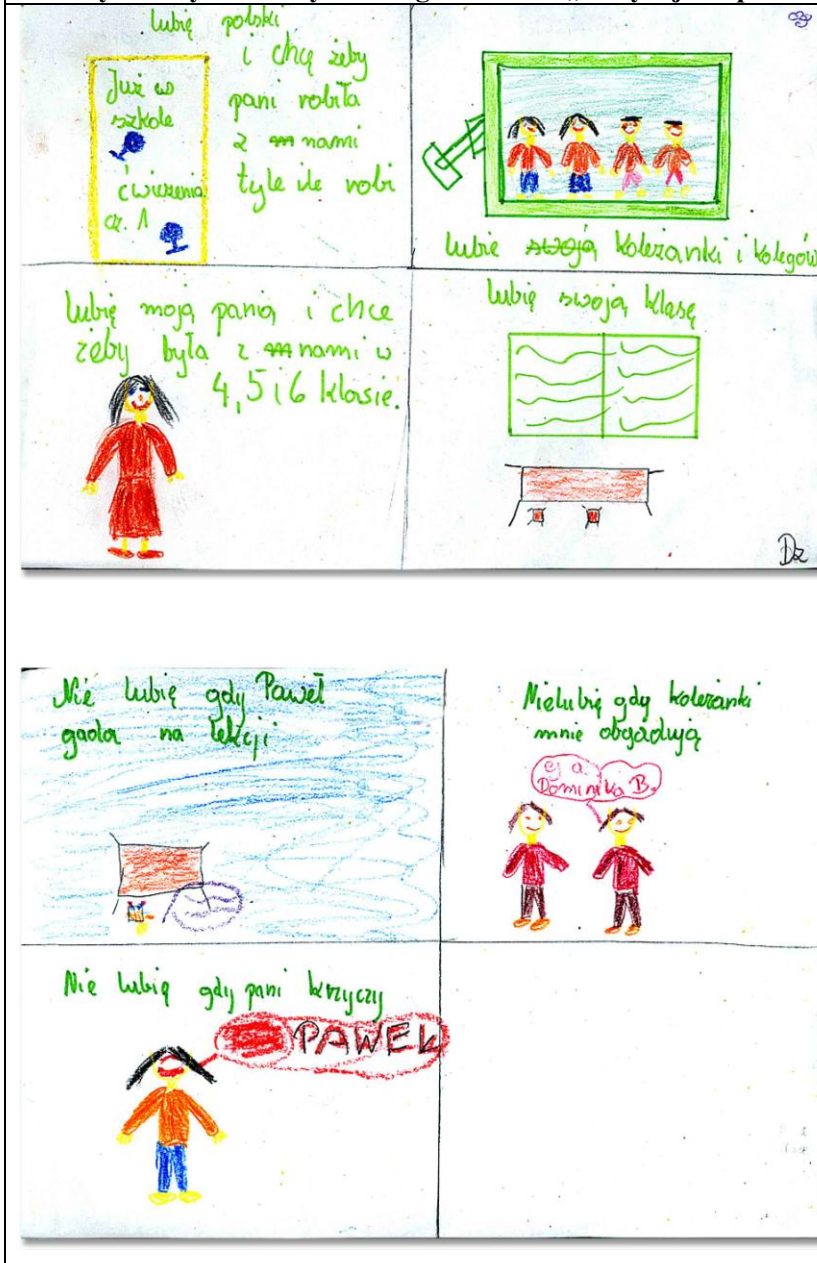 lubię polski
i chcę żeby
pani robiła
z nami
tyle ile robi
Już w
szkole
ćwiczenia
cz. 1
lubie swoją koleżanki i kolegów
lubię moją panią i chce
żeby była z nami w
4,5 i 6 klasie.
lubię swoją klasę
Dz
Nie lubię gdy Paweł
gada na lekcji
Nielubię gdy koleżanki
mnie obgadują
ej a
Dominika B.
Nie lubię gdy pani krzyczy
PAWEŁ